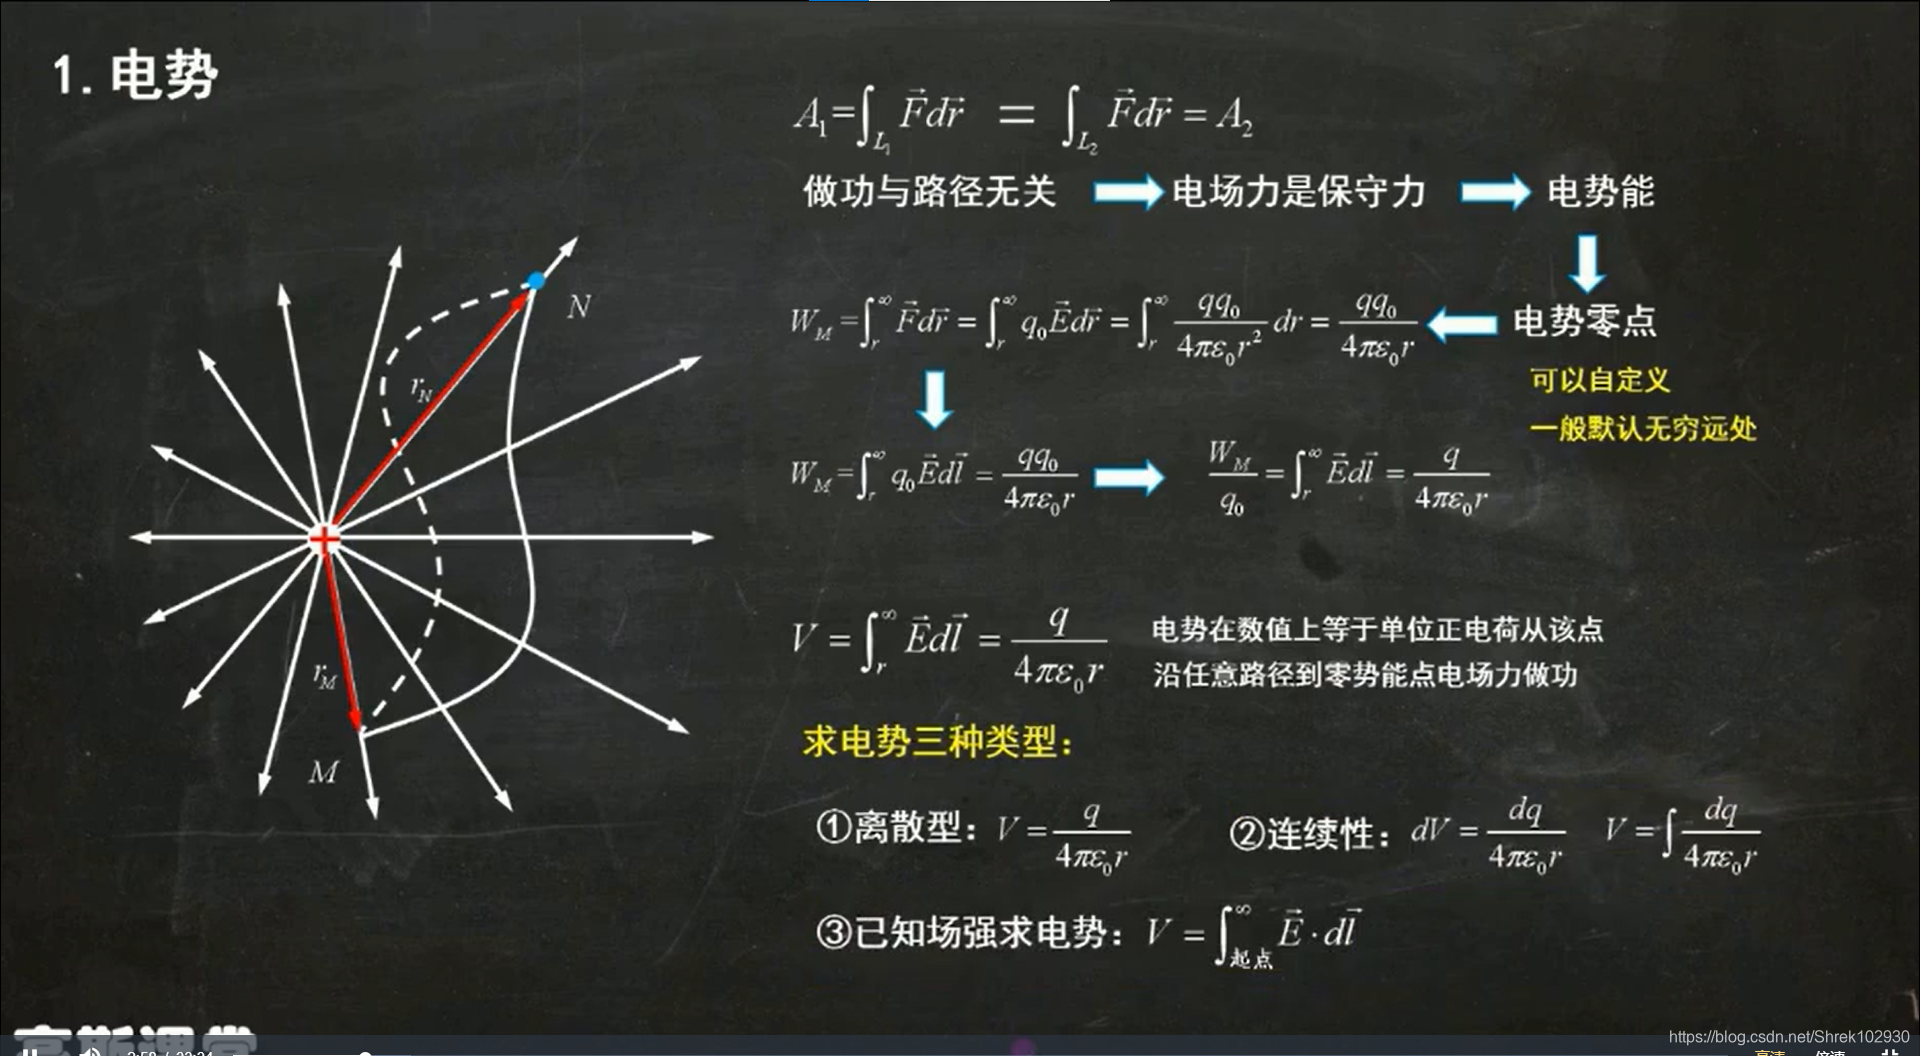 1.电势
A₁=∫_{L₁} F⃗dr⃗ = ∫_{L₂} F⃗dr⃗ = A₂
做功与路径无关 电场力是保守力 电势能
W_M=∫_r^∞ F⃗dr⃗ = ∫_r^∞ q₀E⃗dr⃗ = ∫_r^∞ qq₀/4πε₀r² dr = qq₀/4πε₀r 电势零点
可以自定义
一般默认无穷远处
W_M=∫_r^∞ q₀E⃗dl⃗ = qq₀/4πε₀r W_M/q₀ = ∫_r^∞ E⃗dl⃗ = q/4πε₀r
V = ∫_r^∞ E⃗dl⃗ = q/4πε₀r
电势在数值上等于单位正电荷从该点
沿任意路径到零势能点电场力做功
求电势三种类型:
①离散型: V = q/4πε₀r ②连续性: dV = dq/4πε₀r V = ∫dq/4πε₀r
③已知场强求电势: V = ∫_{起点}^∞ E⃗·dl⃗
N
r_N
+
r_M
M
https://blog.csdn.net/Shrek102930